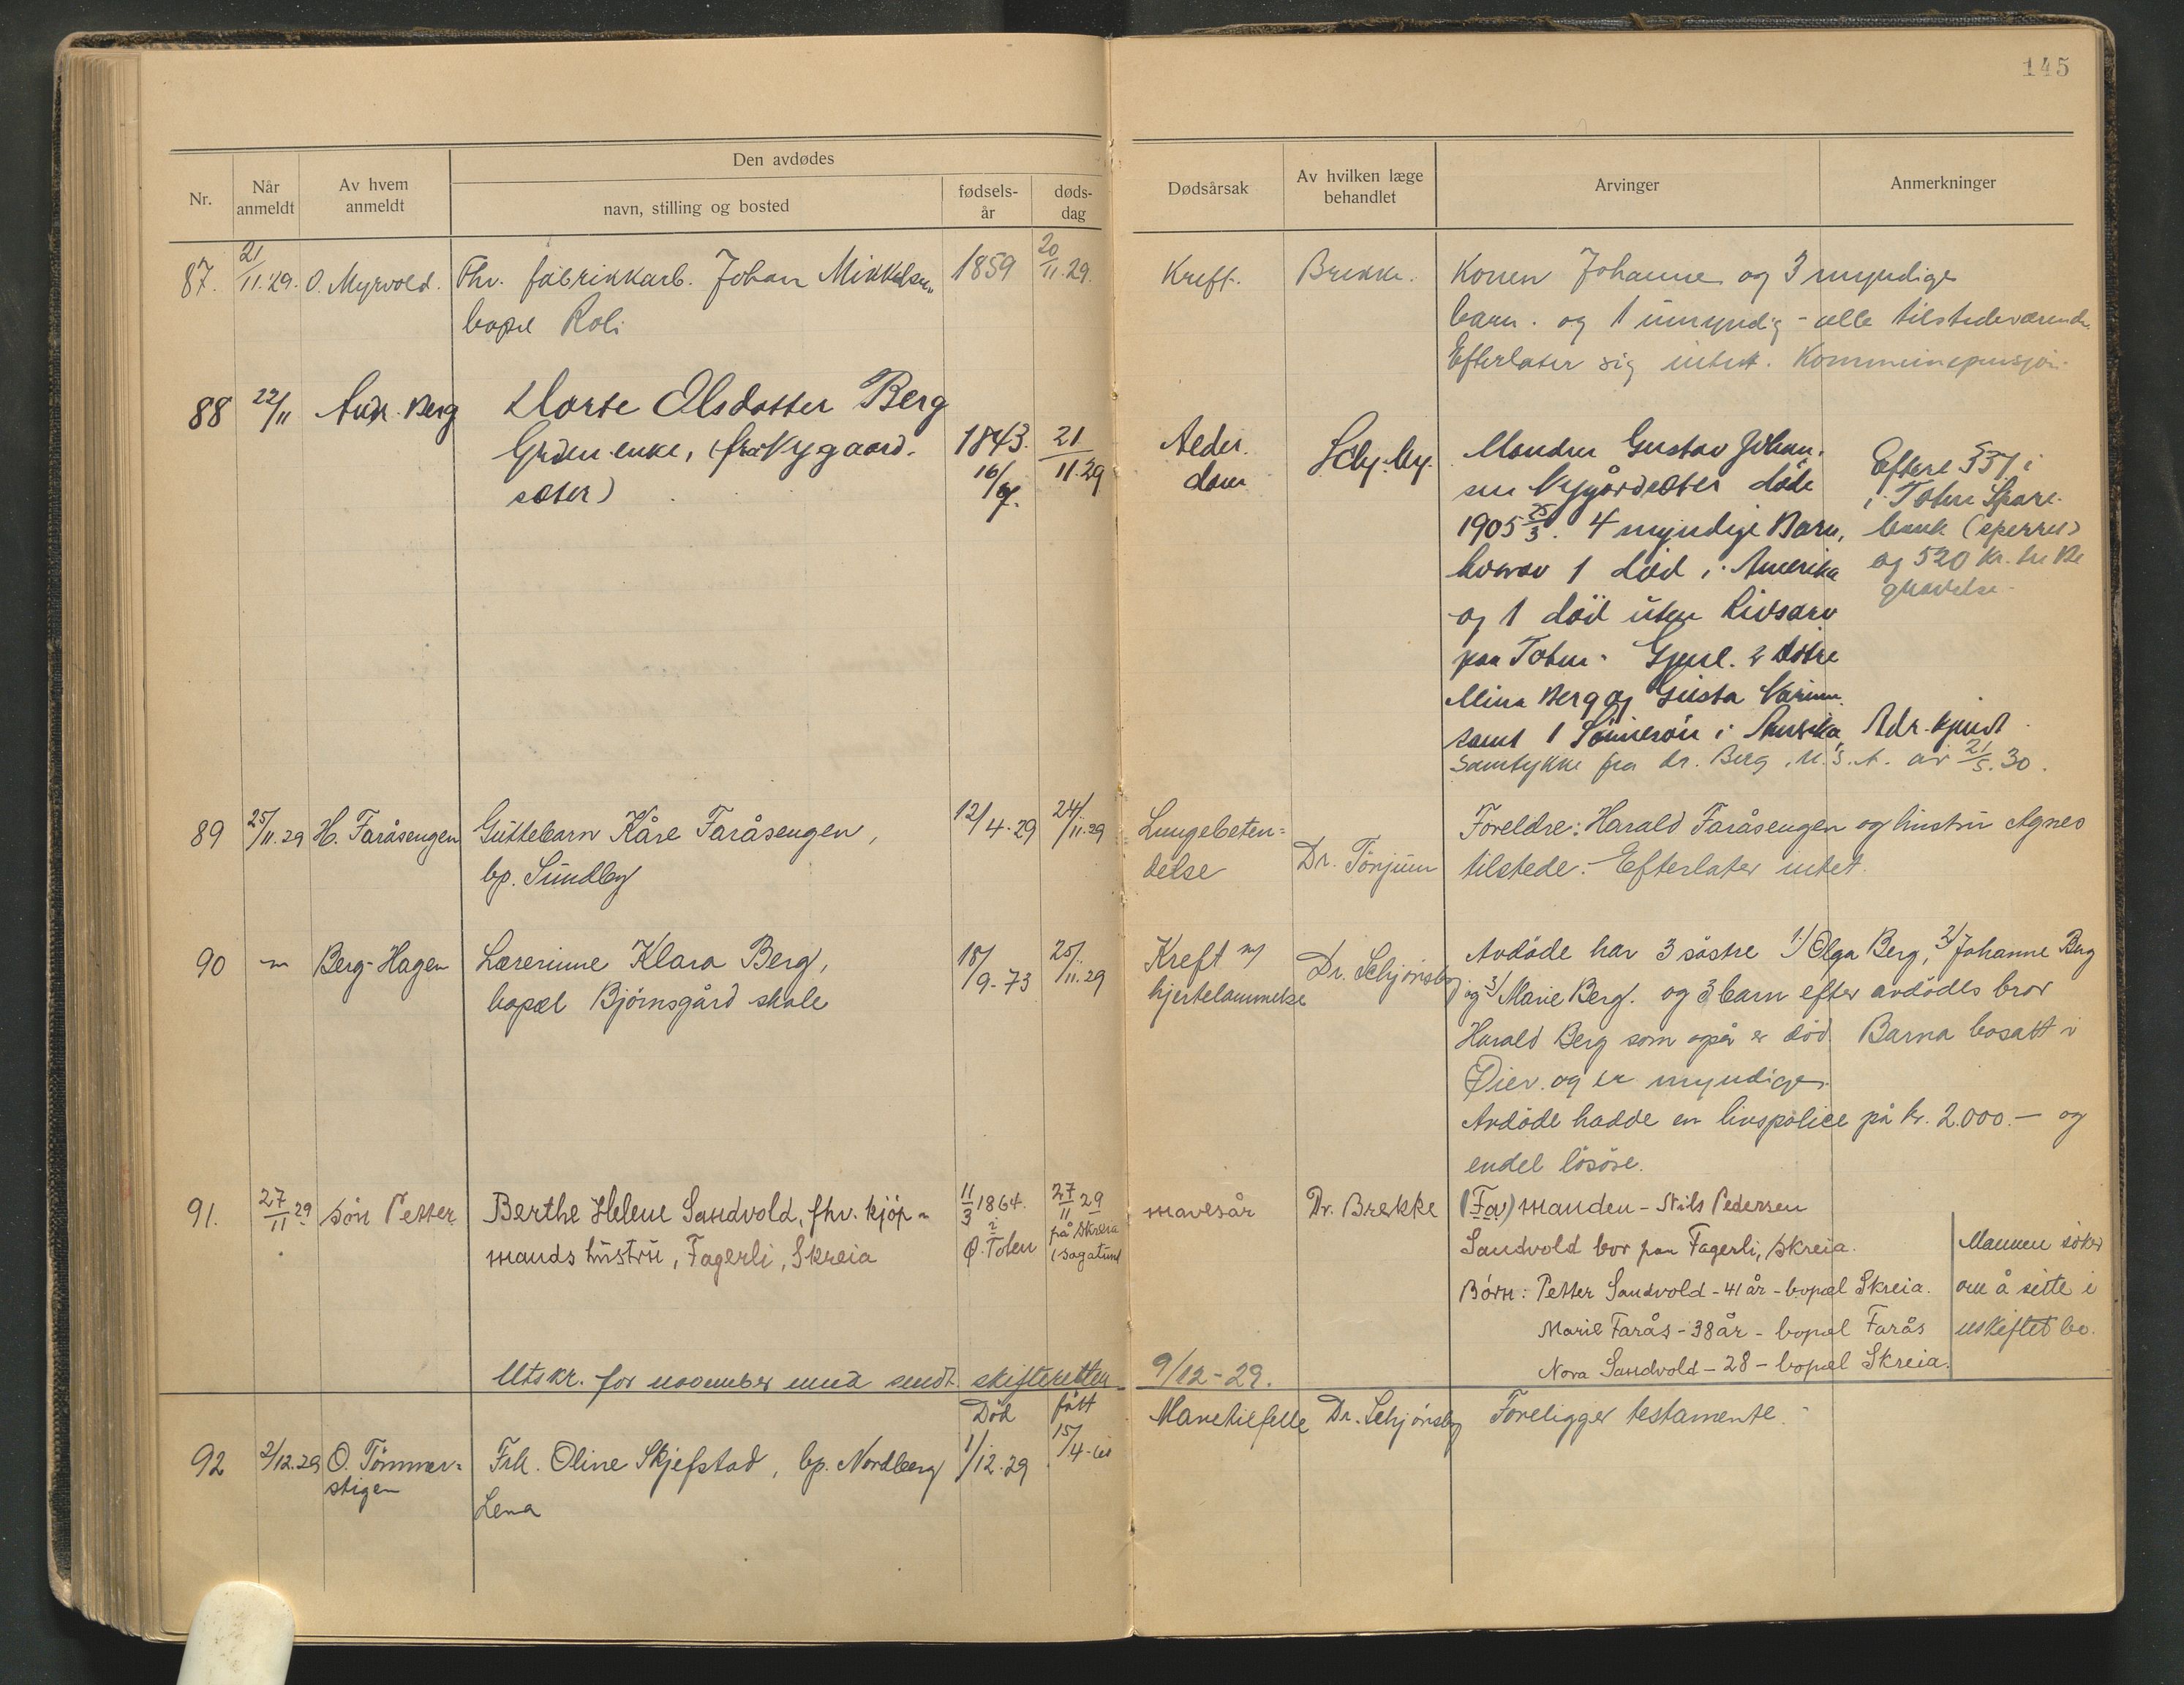 145
Nr.
Når anmeldt
Av hvem anmeldt
Den avdødes
navn, stilling og bosted
fødsels-år
døds-dag
Dødsårsak
Av hvilken læge behandlet
Arvinger
Anmerkninger
87. 21/11.29. O. Myrvold. Fhv. fabrikkarb. Johan Mikkelsen 1859 20/11.29. Kreft. Brekke. Konen Johanne og 3 myndige
bopel Roli barn. og 1 umyndig - alle tilstedeværende.
Efterlater sig intet. Kommunepensjon.
88 22/11 Andr. Berg Dorte Olsdatter Berg
Grden. enke, (fra Nygaard- 1843. 21/11.29 Alder- Schj.by. Manden Gustav Johan- Efterl 551 i
sæter) 16/9. dom sen Nygårdsæter døde i Toten Spare-
1905 25/3. 4 myndige Barn, bank (sperret)
hvorav 1 død i Amerika og 520 kr. til Be
og 1 död uten Livsarv gravelse.
paa Toten. Gjenl. 2 døtre
Mina Berg og Gusta
samt 1 Sønnesøn i Amerika, Adr. kjendt
Samtykke fra dr. Berg, U.S.A. av 21/5.30.
89 25/11.29 H. Faråsengen Guttebarn Kåre Faråsengen, 12/4-29 24/11.29 Lungebeten= Foreldre: Harald Faråsengen og hustru Agnes
bp. Sundby delse Dr. Tönjum tilstede. Efterlater intet.
90 -"- Berg-Hagen Lærerinne Klara Berg, 18/9-73 25/11.29 Kreft m/ Dr. Schjönsby Avdöde har 3 söstre 1/ Olga Berg, 2/ Johanne Berg
bopæl Björnsgård skole hjertelammelse og 3/ Marie Berg. og 3 barn efter avdödes bror
Harald Berg som også er död. Barna bosatt i
Öier. og er myndige.
Avdöde hadde en livspolice på kr. 2.000.- og
endel lösöre.
91. 27/11 29 sön Petter Berthe Helene Sandvold, fhv. kjöp- 11/3 1864. 27/11 29 mavesår Dr. Brekke (Fa) manden - Nils Pedersen
mands hustru, Fagerli, Skreia i Ö. Toten på Skreia (Sagatund Sandvold bor paa Fagerli, Skreia. Mannen söker
Börn: Petter Sandvold - 41 år - bopæl Skreia. om å sitte i
Marie Farås - 38 år - bopæl Farås uskiftet bo.
Nora Sandvold - 28 - bopæl Skreia.
Utskr. for november mnd sendt skifteretten 9/12-29.
Död fött Mavetilfelle Dr. Schjönsby Foreligger testamente.
92 2/12.29 O. Tömmer- Frk. Oline Skjefstad, bp. Nordberg 1/12.29 15/4-61
stigen Lena